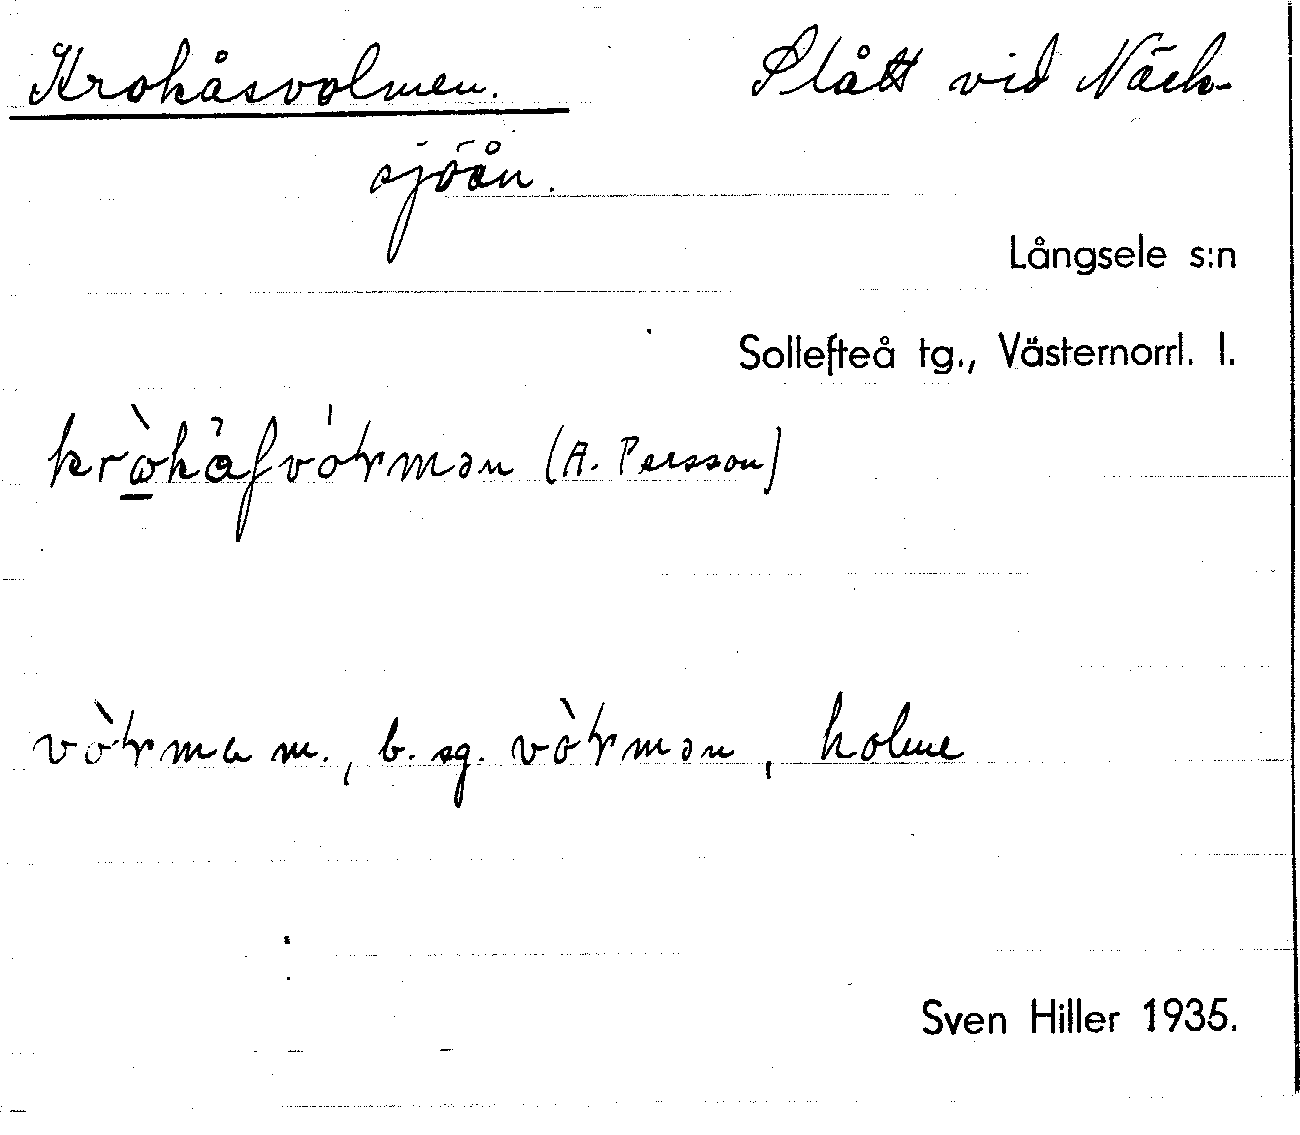 Krokåsvolmen. Slått vid Näck-
sjöån.
Långsele s:n
Sollefteå tg., Västernorrl. l.
(A. Persson)
m., b. sg. , holme
Sven Hiller 1935.